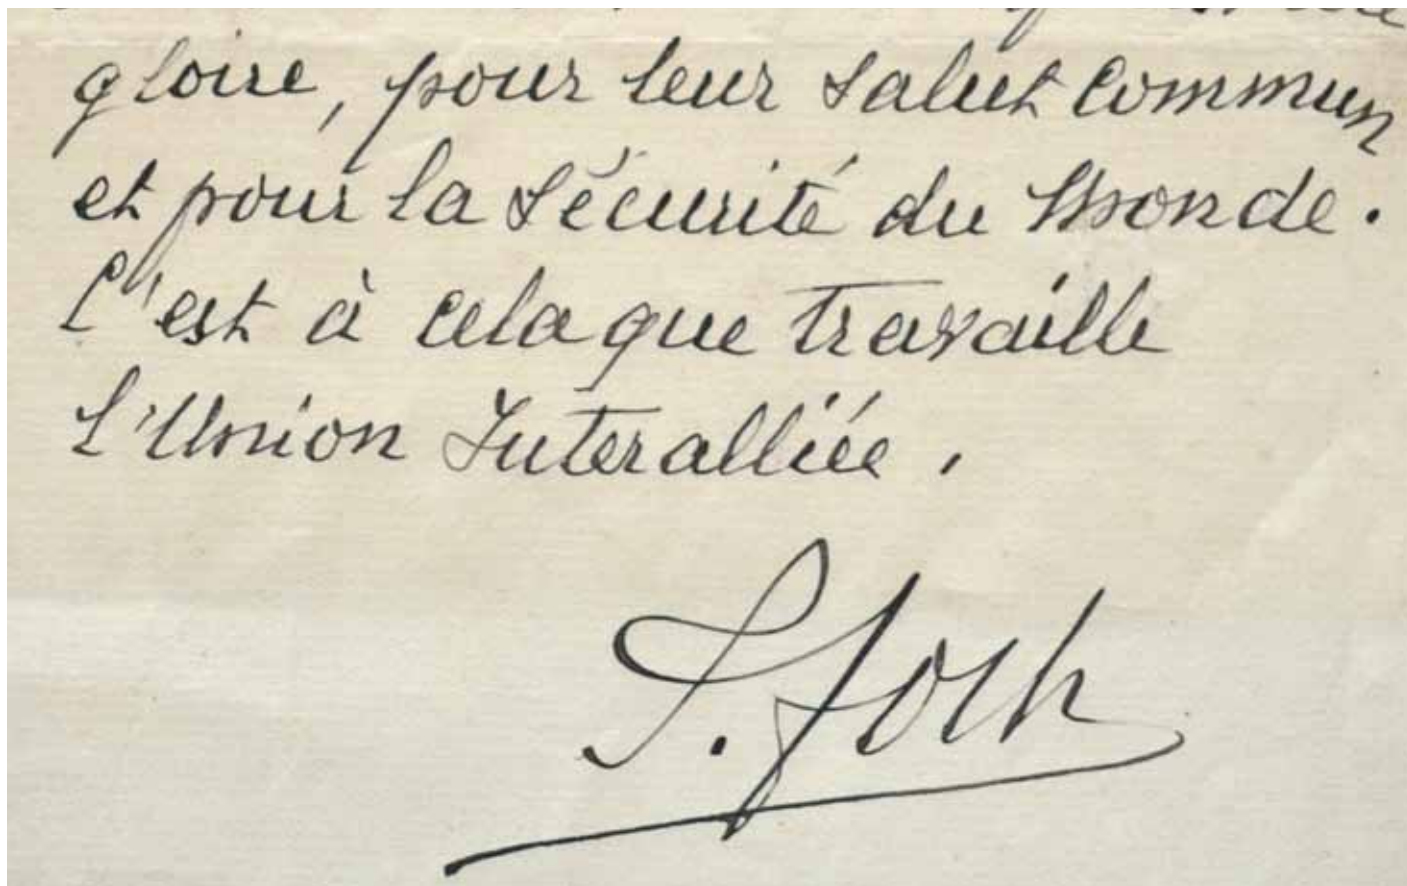 gloire, pour leur salut commun
et pour la sécurité du Monde.
C'est à cela que travaille
l'Union Interalliée.
F. Foch